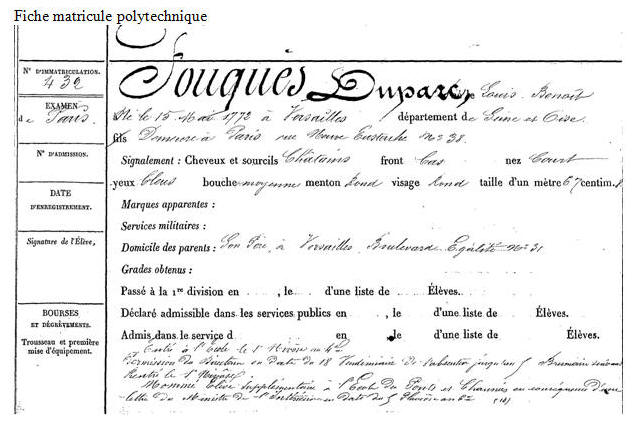 Fiche matricule polytechnique
N° D'IMMATRICULATION.
432
EXAMEN
de Paris.
N° D'ADMISSION.
DATE
D'ENREGISTREMENT.
Signature de l'Élève,
BOURSES
ET DÉGRÈVEMENTS.
Trousseau et première
mise d'équipement.
Fouques Duparc, Louis Benoit
Né le 15 Mai 1772 à Versailles département de Seine et Oise
fils Demeure à Paris rue Neuve Eustache N° 38.
Signalement : Cheveux et sourcils Chatains front bas nez Court
yeux bleus bouche moyenne menton Rond visage Rond taille d'un mètre 67 centim.
Marques apparentes :
Services militaires :
Domicile des parents : Son Père, à Versailles Boulevard Egalité N° 31
Grades obtenus :
Passé à la 1re division en , le d'une liste de Élèves.
Déclaré admissible dans les services publics en , le d'une liste de Élèves.
Admis dans le service d en , le d'une liste de Élèves.
Entré à l'Ecole le 1er Nivôse an 4e
Permission du Directeur en date du 18 Vendémiaire de s'absenter jusqu'au 5 Brumaire
Rentré le 1er
Nommé Elève Supplémentaire à l'Ecole des Ponts et Chaussées en conséquence d'une
lettre du Ministre de l'Intérieur en date du 5 Pluviôse an 6e